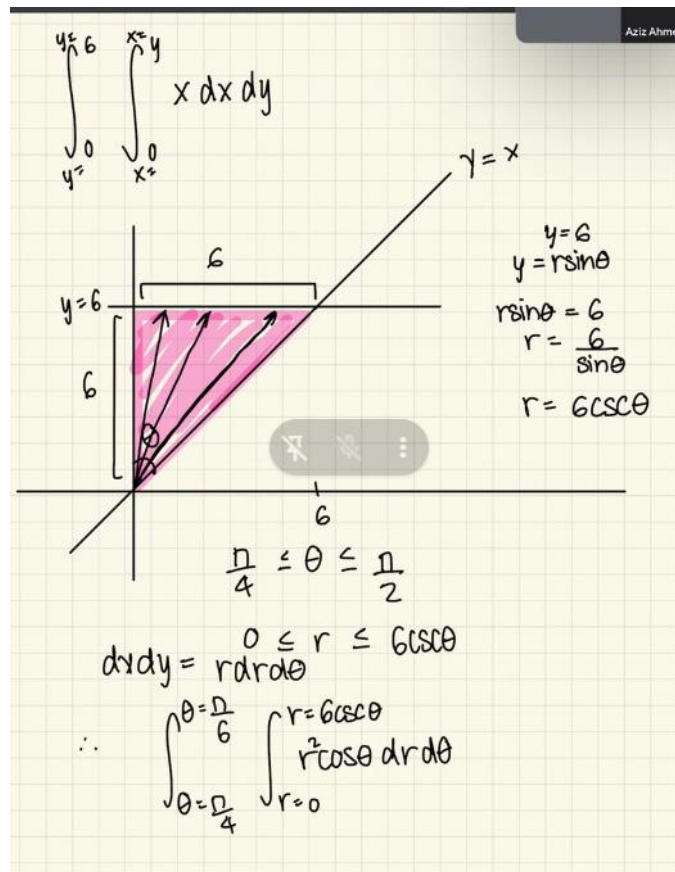 Aziz Ahme
∫_{y=0}^{y=6} ∫_{x=0}^{x=y} x dx dy
y = x
6
y=6
6
θ
6
y=6
y = rsinθ
rsinθ = 6
r = 6/sinθ
r = 6cscθ
π/4 ≤ θ ≤ π/2
0 ≤ r ≤ 6cscθ
dxdy = rdrdθ
∴ ∫_{θ=π/4}^{θ=π/6} ∫_{r=0}^{r=6cscθ} r²cosθ drdθ